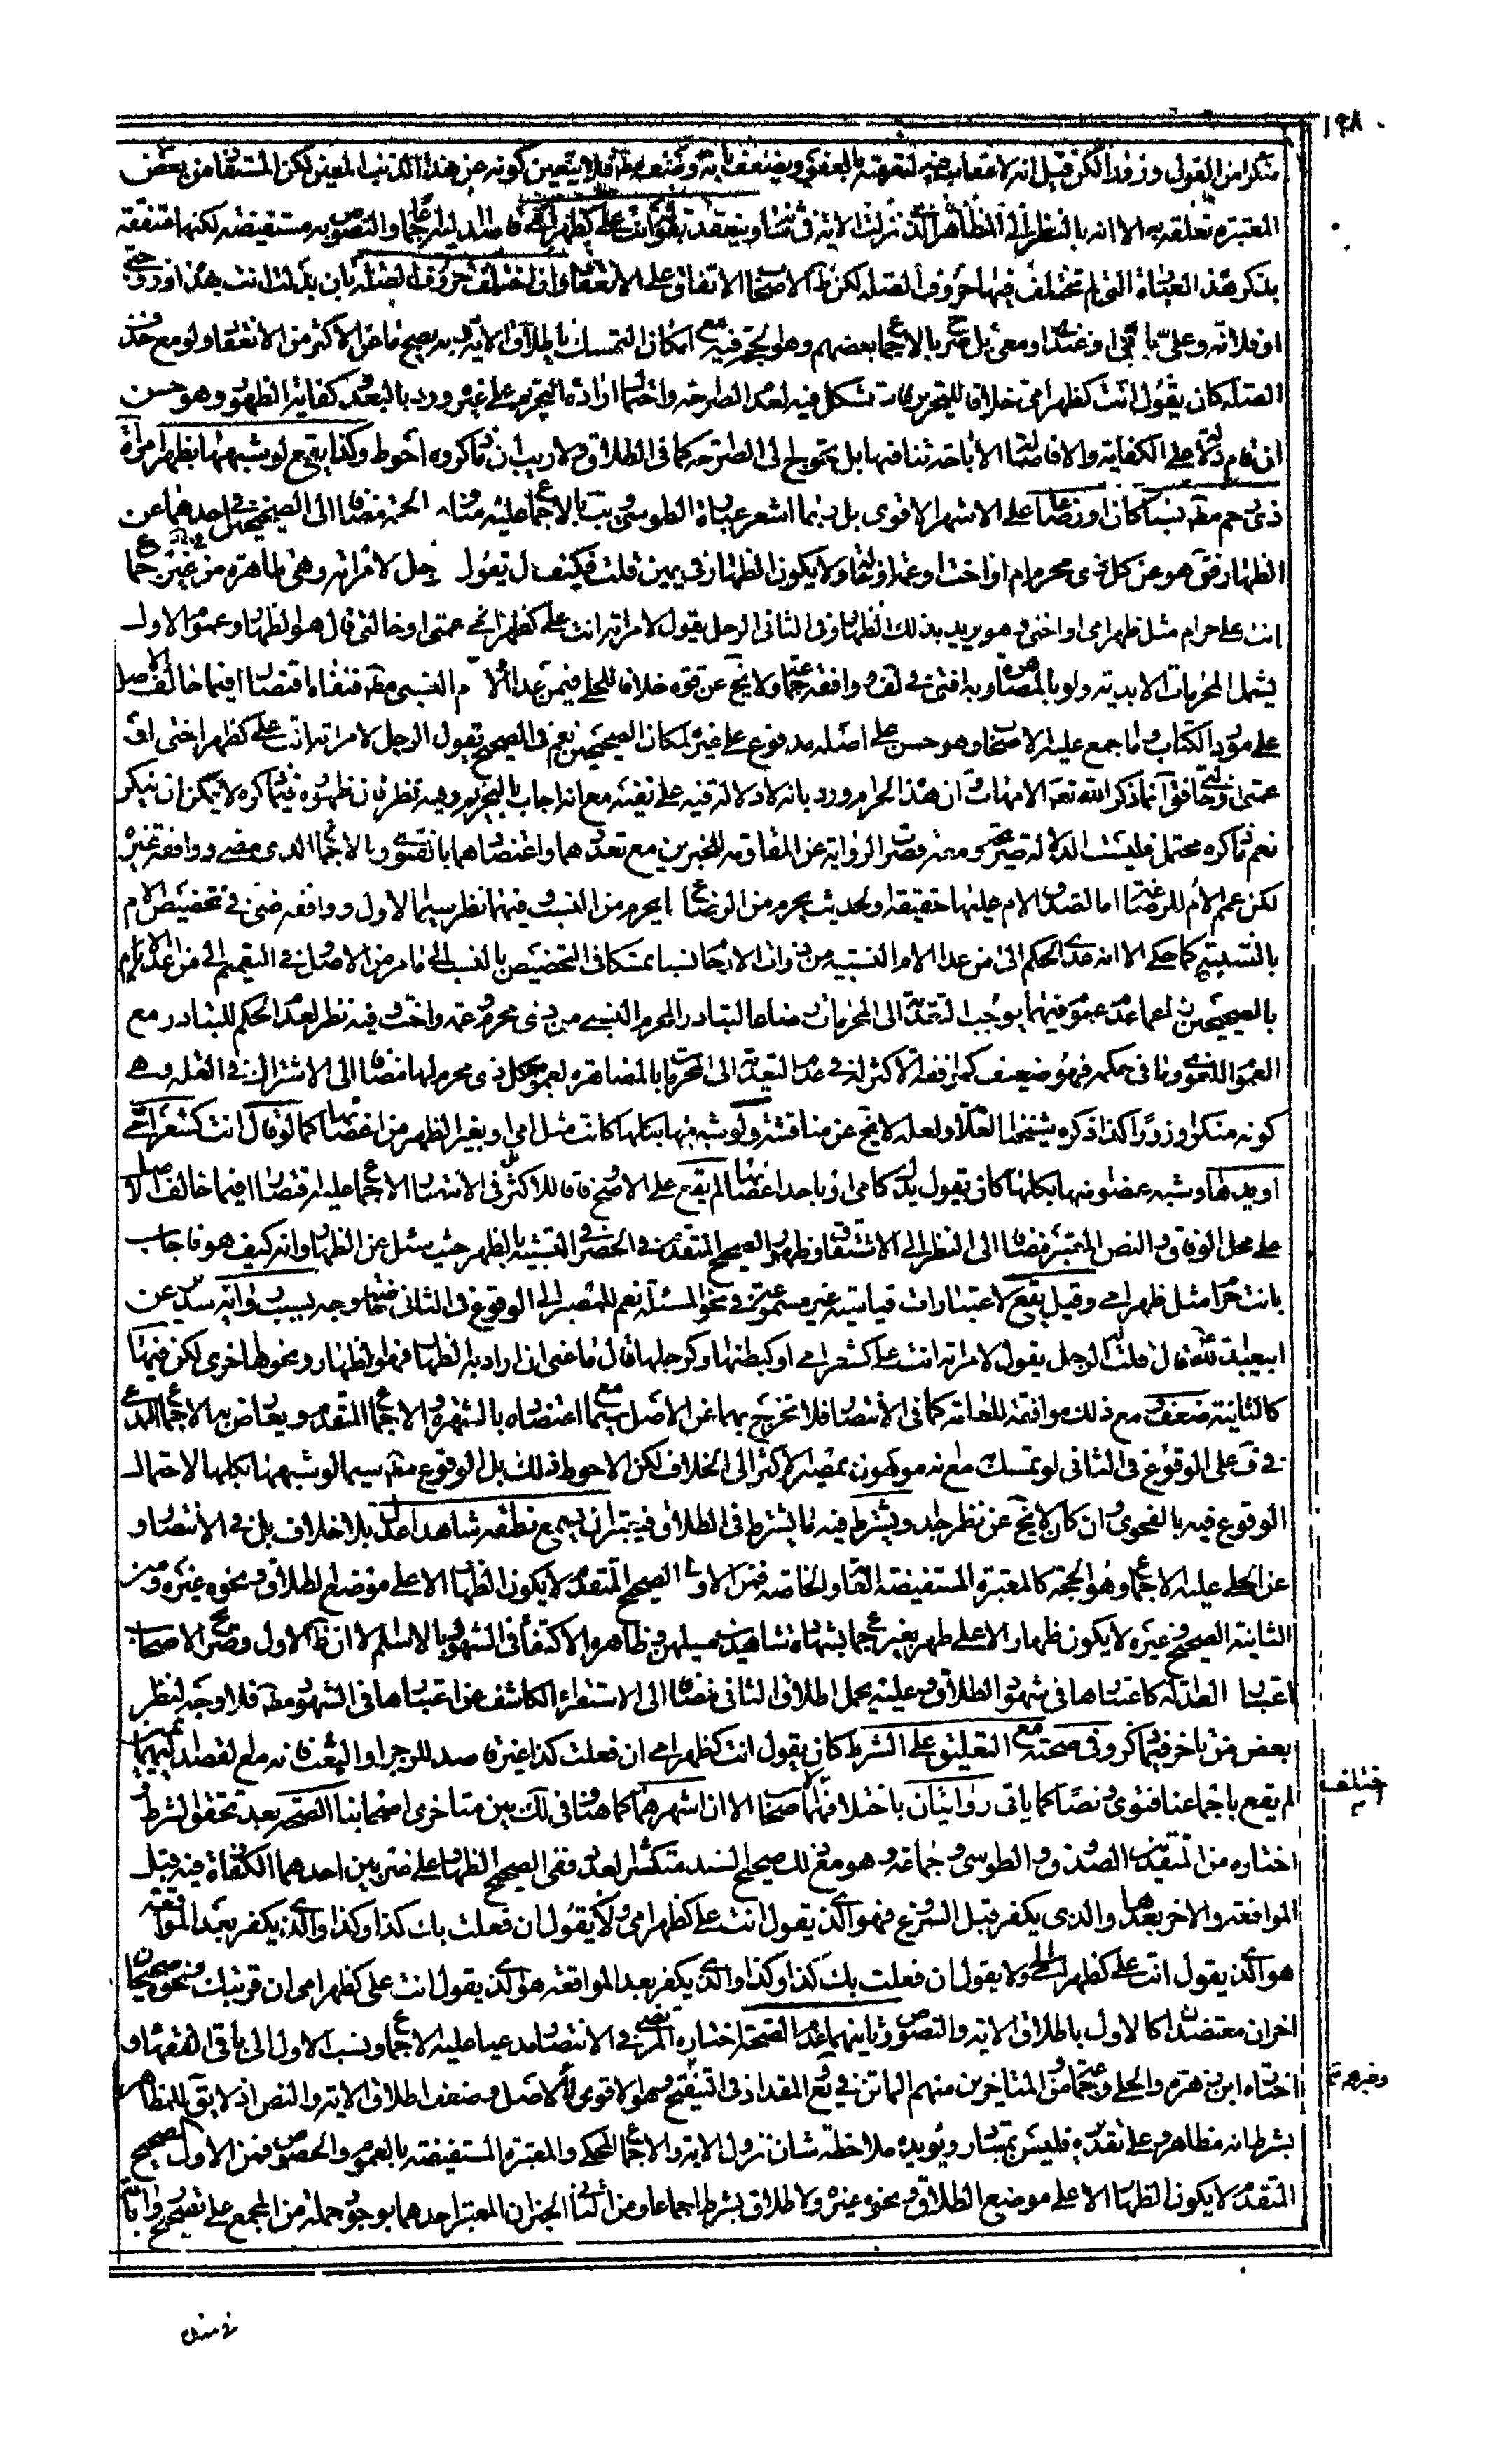 ۱۹۸
منكرا من القول وزورا لكن قيل انه لا عقاب فيه لتعقبه بالعفو ويضعف بانه وصف مط فلا يتعين كونه عن هذا الذنب المعين لكن المستفاد من بعض
المعتبرة تعلقه به الا انه بالنظر الى المظاهر الذي نزلت الاية في شأنه وينعقد بقوله انت علي كظهر امي فان الدليل اجماعا والنصوص به مستفيضة لكنها متفقة
بذكر هذه العبارة التي لم تختلف فيها حروف الصلة لكن ظ الاصحاب الاتفاق على الانعقاد وان اختلفت حروف الصلة بان بدلت انت بهذه او زوجتي
او فلانة وعلي بمني او عندي او معي بل صرح بالاجماع بعضهم وهو الحجة فيه مع امكان التمسك باطلاق الاية به يصح ما عن الاكثر من الانعقاد ولو مع حذف
الصلة كان يقول انت كظهر امي خلافا للتحرير فاستشكل فيه لعدم الصراحة واحتمال ارادة التحريم على غيره ورد بالبعد كفاية الظهور وهو حسن
ان قام دليل على الكفاية والا فاصالة الاباحة تنافيها بل يحتاج الى الصراحة كما في الطلاق ولا ريب ان ما ذكروه احوط وكذا يقع لو شبهها بظهر امراة
ذي رحم مط نسبا كان او رضاعا على الاشهر الاقوى بل ربما اشعر عبارة الطوسي بالاجماع عليه الحجة مضافا الى الصحيحين في احدهما عن
الظهار فق هو عن كل ذي محرم ام او اخت او عمة او خالة ولا يكون الظهار في يمين قلت فكيف قال يقول الرجل لامراته وهي طاهرة من غير جماع
انت علي حرام مثل ظهر امي او اختي وهو يريد بذلك الظهار وفي الثاني الرجل يقول لامراته انت علي كظهر اختي عمتي او خالتي قال هو الظهار وعموم الاول
يشمل المحرمات الابدية ولو بالمصاهرة وبه افتى في لف وافقه جماعة ولا يخ عن قوة خلافا للحلي فيمن عدا الام النسبي مط فنفاه اقتصارا فيما خالف الاصل
على مورد الكتاب وما اجمع عليه الاصحاب وهو حسن على اصله مدفوع على غيره لمكان الصحيحين نعم في الصحيح يقول الرجل لامراته انت علي كظهر اختي او
عمتي او خالتي فق انما ذكر الله تعه الامهات وان هذا الحرام ورد بانه لا دلالة فيه على نفيه مع انه اجاب بالتحريم وفيه نظر فان ظهوره فيما ذكره لا يمكن ان ينكر
نعم ما ذكره محتمل فليست الدلالة صريحة ومعه قصرت الرواية عن المقاومة للخبرين مع تعددهما واعتضادهما بالفتوى وبالاجماع الذي مضى ووافقه غيره
لكن عمم الام للرضاعية اما لصدق الام عليها حقيقة او لحديث يحرم من الرضاع ما يحرم من النسب وفيهما نظر سيما الاول ووافقه ضى في تخصيص الام
بالنسبية كما حكي الا انه عدى الحكم الى من عدا الام النسبية من ذوات الارحام نسبا تمسكا في التخصيص بالنسب الى ما مر من الاصل وفي التعميم الى من عدا الام
بالصحيحين لعدم عموم فيهما يوجب التعدية الى المحرمات رضاعا لتبادر المحرم النسبي من ذي محرم وعمة واخت وفيه نظر لعدم الحكم للتبادر مع
العموم اللغوي وما في حكمه فهو ضعيف كموافقة الاكثر له في عدم التعدية الى المحرمات بالمصاهرة لعموم كل ذي محرم لها مضافا الى الاشتراك في العلة وهي
كونه منكرا وزورا كذا ذكره شيخنا العلامة ولعله لا يخ عن مناقشة ولو شبهها بتمامها كانت مثل امي او بغير الظهر من اعضائها كما لو قال انت كشعر امي
او يدها او شبه عضوا منها بكلها كان يقول يدك كامي او باحد اعضائها لم يقع على الاصح وفاقا للاكثر بل في الانتصار الاجماع عليه اقتصارا فيما خالف الاصل
على محل الوفاق والنص المعتبر مضافا الى النظر الى الاشتقاق وظهور الصحيح المتقدم في الحصر في التشبيه بالظهر حيث سئل عن الظهار وانه كيف هو فاجاب
بانت حرام مثل ظهر امي وقيل يقع لاعتبارات قياسية غير مسموعة في نحو المسئلة نعم للمصير الى الوقوع في الثاني خاصة وجه بسبب رواية سدير عن
ابيعبد الله ع قال قلت الرجل يقول لامراته انت علي كشعر امي او كبطنها او كرجلها قال ما عنى ان اراد به الظهار فهو الظهار ونحوها اخرى لكن فيهما
كالثانية ضعف مع ذلك موافقة للعامة كما في الانتصار فلا تخرج بهما عن الاصل سيما مع اعتضاده بالشهرة والاجماع المتقدم ويعارض به الاجماع المدعى
في ف على الوقوع في الثاني لو تمسك به مع انه موهون بمصير الاكثر الى الخلاف لكن الاحوط ذلك بل الوقوع مط سيما لو شبهها بكلها لاحتمال
الوقوع فيه بالفحوى وان كان لا يخ عن نظر جد ويشترط فيه ما يشترط في الطلاق فيعتبر ان يسمع نطقه شاهدا عدل بلا خلاف بل في الانتصار و
عن الحلي عليه الاجماع وهو الحجة كالمعتبرة المستفيضة العامة والخاصة فمن الاولى الصحيح المتقدم لا يكون الظهار الا على موضع الطلاق ونحوه غيره ومن
الثانية الصحيح وغيره لا يكون ظهار الا على طهر بغير جماع بشهادة شاهدين مسلمين وظاهره الاكتفاء في الشهود بالاسلام الا ان ظ الاول وصريح الاصحاب
اعتبار العدالة كاعتبارها في شهود الطلاق وعليه يحمل اطلاق الثاني مضافا الى الاستقراء الكاشف عن اعتبارها في الشهود مط فلا وجه لنظر
بعض من تاخر فيما ذكر وفي صحته مع التعليق على الشرط كان يقول انت كظهر امي ان فعلت كذا غير قاصد للزجر او البعث فانه مع قصد اليمين
لم يقع باجماعنا فتوى ونصا كما ياتي روايتان باختلافهما اختلف الاصحاب الا ان اشهرهما كما هنا وفي لك بين متاخري اصحابنا الصحة بعد تحقق الشرط
اختاره من المتقدمين الصدوق والطوسي وجماعة وهو مع ذلك صحيح السند متكثر العدد ففي الصحيح الظهار على ضربين احدهما الكفارة فيه قبل
المواقعة والاخر بعدها والذي يكفر قبل الشروع فهو الذي يقول انت علي كظهر امي ولا يقول ان فعلت بك كذا وكذا والذي يكفر بعد المواقعة
هو الذي يقول انت علي كظهر امي ولا يقول ان فعلت بك كذا وكذا والذي يكفر بعد المواقعة هو الذي يقول انت علي كظهر امي ان قربتك ونحوه صحيحان
اخران معتضدا كالاول باطلاق الاية والنصوص وثانيهما عدم الصحة اختاره المرتضى في الانتصار مدعيا عليه الاجماع ونسب الاول الى باقي الفقهاء و
اختاره ابن زهرة والحلي وجماعة من المتاخرين منهم الماتن في يع المقداد في التنقيح وهو الاقوى للاصل وضعف اطلاق الاية والنص اذ لا يق للمظاهر
بشرط انه مظاهر وعلى تقديره فليس بمتبادر ويؤيده ملاحظة شان نزول الاية والاجماع المحكي والمعتبرة المستفيضة بالعموم والخصوص فمن الاول الصحيح
المتقدم لا يكون الظهار الا على موضع الطلاق ونحوه غيره ولا طلاق بشرط اجماعا ومن الثاني الخبران المعتبر احدهما بوجود جملة من المجمع على تصحيح رواياته